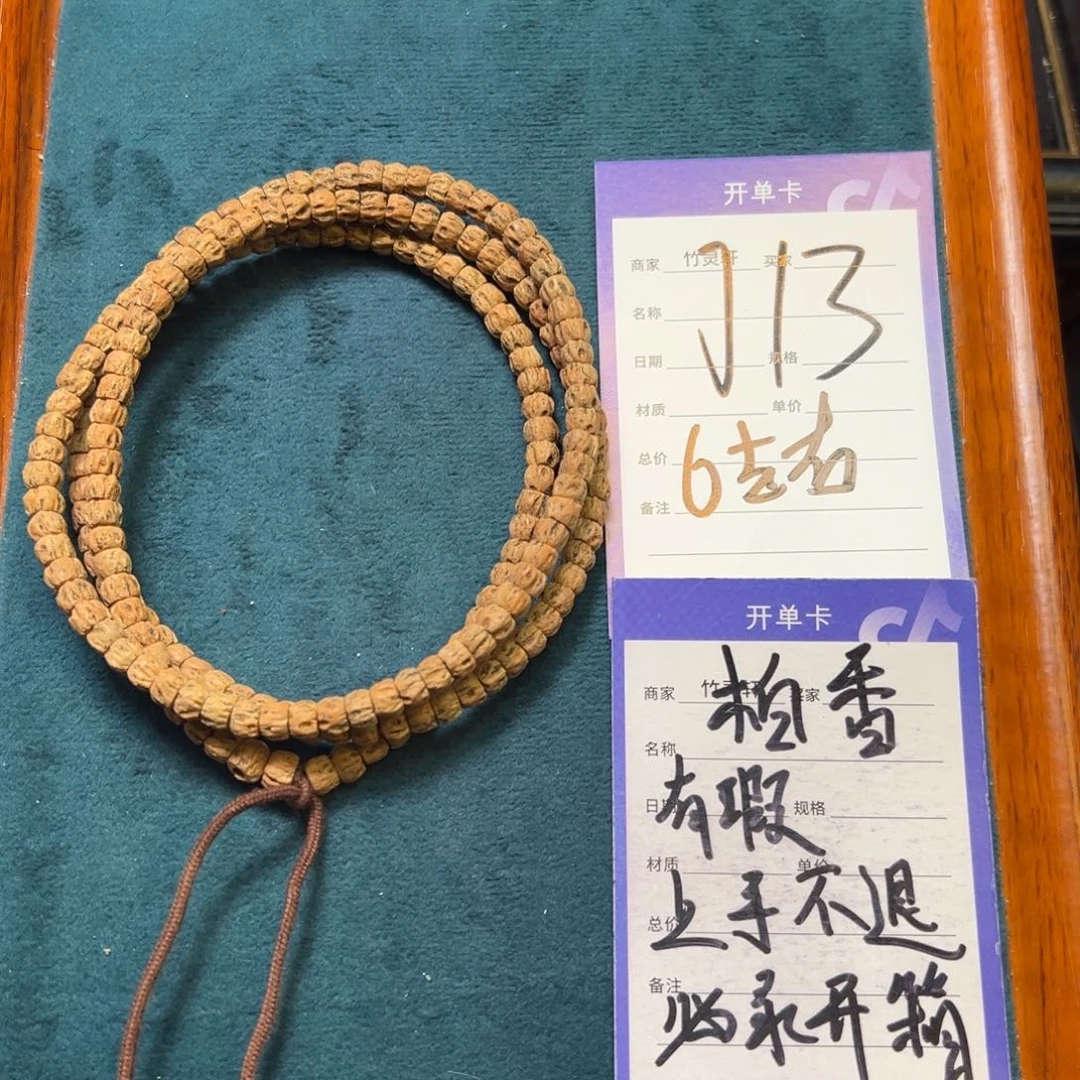 开单卡
商家 竹灵轩 买家
J13
名称
日期 规格
材质 单价
总价 6左右
备注
开单卡
商家 竹灵轩 买家
柏香
名称
有瑕
日期 规格
材质 单价
上手不退
总价
备注
必录开箱